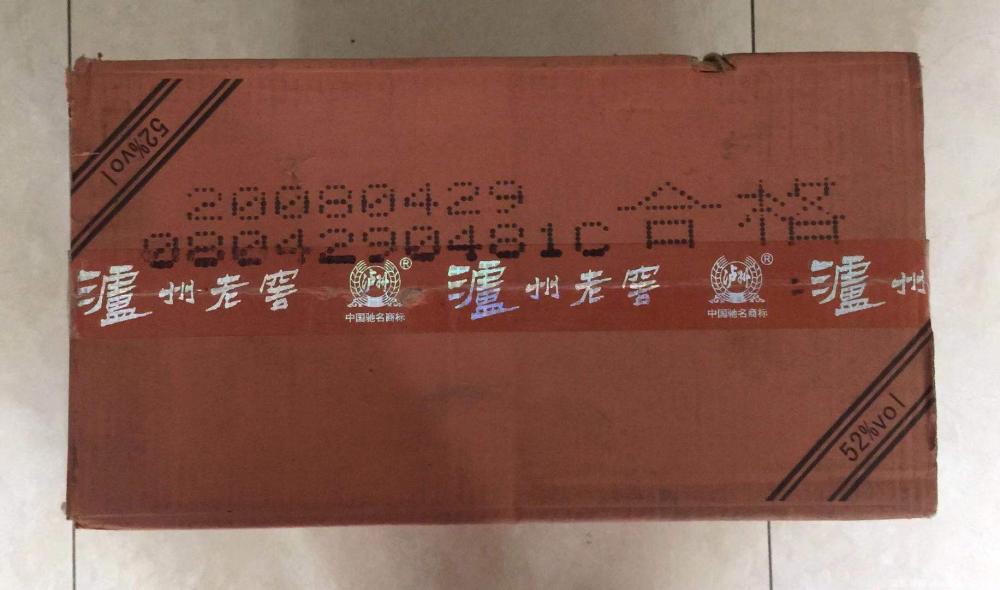 52%vol
20080429 合格
0804290481C
泸州老窖 泸州® 泸州老窖 泸州® 泸州
中国驰名商标 中国驰名商标
52%vol